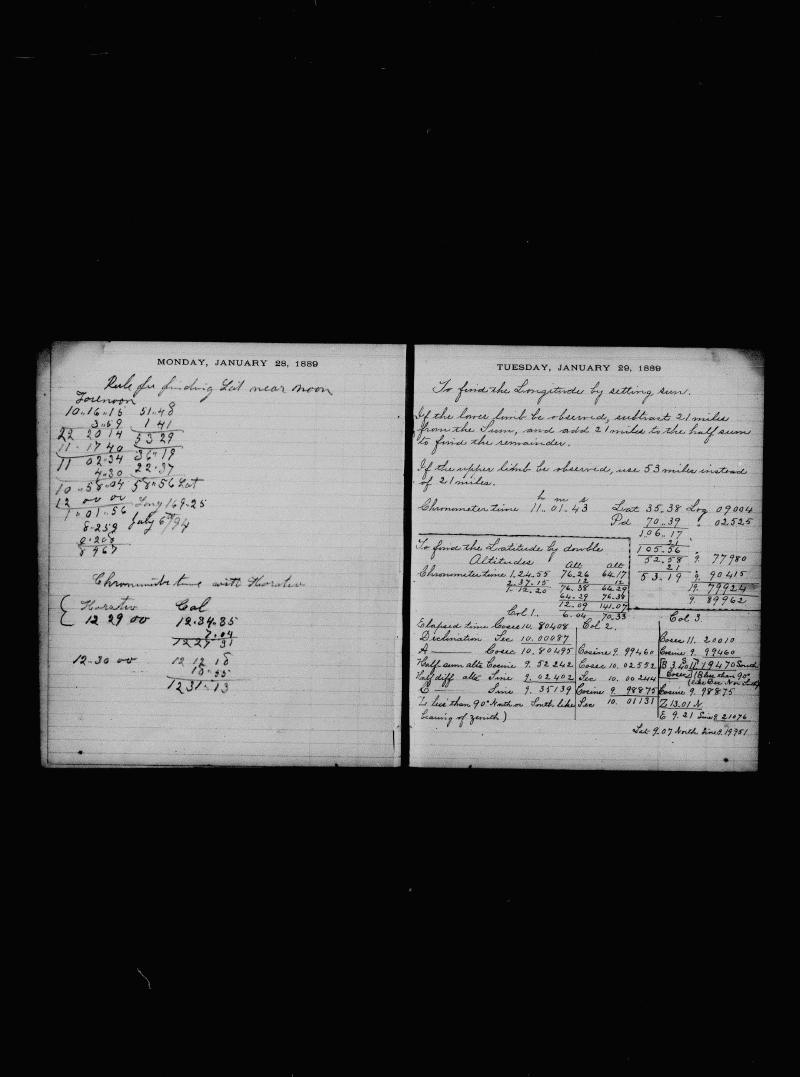 MONDAY, JANUARY 28, 1889
Rule for finding Lat near noon
Forenoon
10.16.15 51.48
3.59 1 41
22 20 14 53 29
11.17 40 36.19
11 02.34 22.37
4.30
10.58.04 58.56 Lat
12 00 00 Long 169.25
1.01.56 July 6th/94
8.259
0.208
8467
Chronometer time with Horatio
Horatio Gal
12 29 00 12.34.35
7.04
12 27 31
12.30 00 12 12 18
18.55
12 31.13
TUESDAY, JANUARY 29, 1889
To find the Longitude by setting sun.
If the lower limb be observed, subtract 21 miles
from the Sum, and add 21 miles to the half sum
to find the remainder.
If the upper limb be observed, use 53 miles instead
of 21 miles.
h m s
Chronometer time 11.01.43 Lat 35.38 Log 09004
Pd 70.39 02525
106.17
21
105.56
52.58 9. 77980
21
53.19 9. 90415
19. 79924
9. 89962
To find the Latitude by double
Altitudes Alt alt
Chronometer time 1.24.55 76.26 64.17
2.37.15 12 12
1.12.20 76.38 64.29
64.29 76.38
12.09 141.07
6.04 70.33
Col 1. Col 2. Col 3.
Elapsed time Cosec 10. 80408
Declination Sec 10. 00087 Cosec 11. 20010
A Cosec 10. 80495 Cosine 9. 99460 Cosine 9. 99460
Half sum alts Cosine 9. 52242 Cosec 10. 02552 B 3.40 11 19470 South
Half diff alts Sine 9. 02402 Sec 10. 00244 Cosec (B less than 90°
C Sine 9. 35139 Cosine 9 98875 Cosine 9. 98875
Z less than 90° North or South like Sec 10. 01131 Z 13.01 N
bearing of zenith) E 9.21 Sine 9 21076
Lat 9.07 North Sine 9.19951